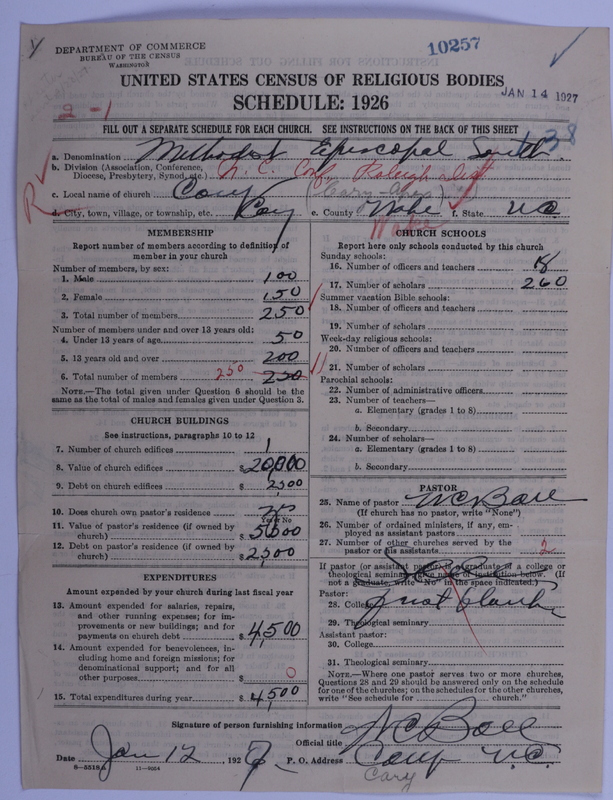 DEPARTMENT OF COMMERCE
BUREAU OF THE CENSUS
WASHINGTON
10257
UNITED STATES CENSUS OF RELIGIOUS BODIES
JAN 14 1927
SCHEDULE: 1926
2-1
FILL OUT A SEPARATE SCHEDULE FOR EACH CHURCH. SEE INSTRUCTIONS ON THE BACK OF THIS SHEET
a. Denomination Methodist Episcopal South
b. Division (Association, Conference, Diocese, Presbytery, Synod, etc.) N. C. Conf. Raleigh dist
c. Local name of church Cary
d. City, town, village, or township, etc. Cary e. County Wake f. State N.C.
Wake
MEMBERSHIP
Report number of members according to definition of member in your church
Number of members, by sex:
1. Male 100
2. Female 150
3. Total number of members 250
Number of members under and over 13 years old:
4. Under 13 years of age 50
5. 13 years old and over 200
6. Total number of members 250 250
NOTE.—The total given under Question 6 should be the same as the total of males and females given under Question 3.
CHURCH BUILDINGS
See instructions, paragraphs 10 to 12
7. Number of church edifices 1
8. Value of church edifices $ 20,000
9. Debt on church edifices $ 2500
10. Does church own pastor's residence
Yes or No
11. Value of pastor's residence (if owned by church) $ 5500
12. Debt on pastor's residence (if owned by church) $ 2,500
EXPENDITURES
Amount expended by your church during last fiscal year
13. Amount expended for salaries, repairs, and other running expenses; for improvements or new building; and for payments on church debt $ 4,500
14. Amount expended for benevolences, including home and foreign missions; for denominational support; and for all other purposes $ 0
15. Total expenditures during year $ 4,500
CHURCH SCHOOLS
Report here only schools conducted by this church
Sunday schools:
16. Number of officers and teachers 18
17. Number of scholars 260
Summer vacation Bible schools:
18. Number of officers and teachers
19. Number of scholars
Week-day religious schools:
20. Number of officers and teachers
21. Number of scholars
Parochial schools:
22. Number of administrative officers
23. Number of teachers—
a. Elementary (grades 1 to 8)
b. Secondary
24. Number of scholars—
a. Elementary (grades 1 to 8)
b. Secondary
PASTOR
25. Name of pastor
(If church has no pastor, write "None")
26. Number of ordained ministers, if any, employed as assistant pastors
27. Number of other churches served by the pastor or his assistants 2
If pastor (or assistant pastor) is graduate of a college or theological seminary, give name of institution below. (If not a graduate, write "No" in the space indicated.)
Pastor:
28. College
29. Theological seminary
Assistant pastor:
30. College
31. Theological seminary
NOTE.—Where one pastor serves two or more churches, Questions 28 and 29 should be answered only on the schedule for one of the churches; on the schedules for the other churches, write "See schedule for church."
Signature of person furnishing information
Official title
Date Jan 12 1927 P. O. Address Cary N.C.
8-5518A 11-9054
Cary